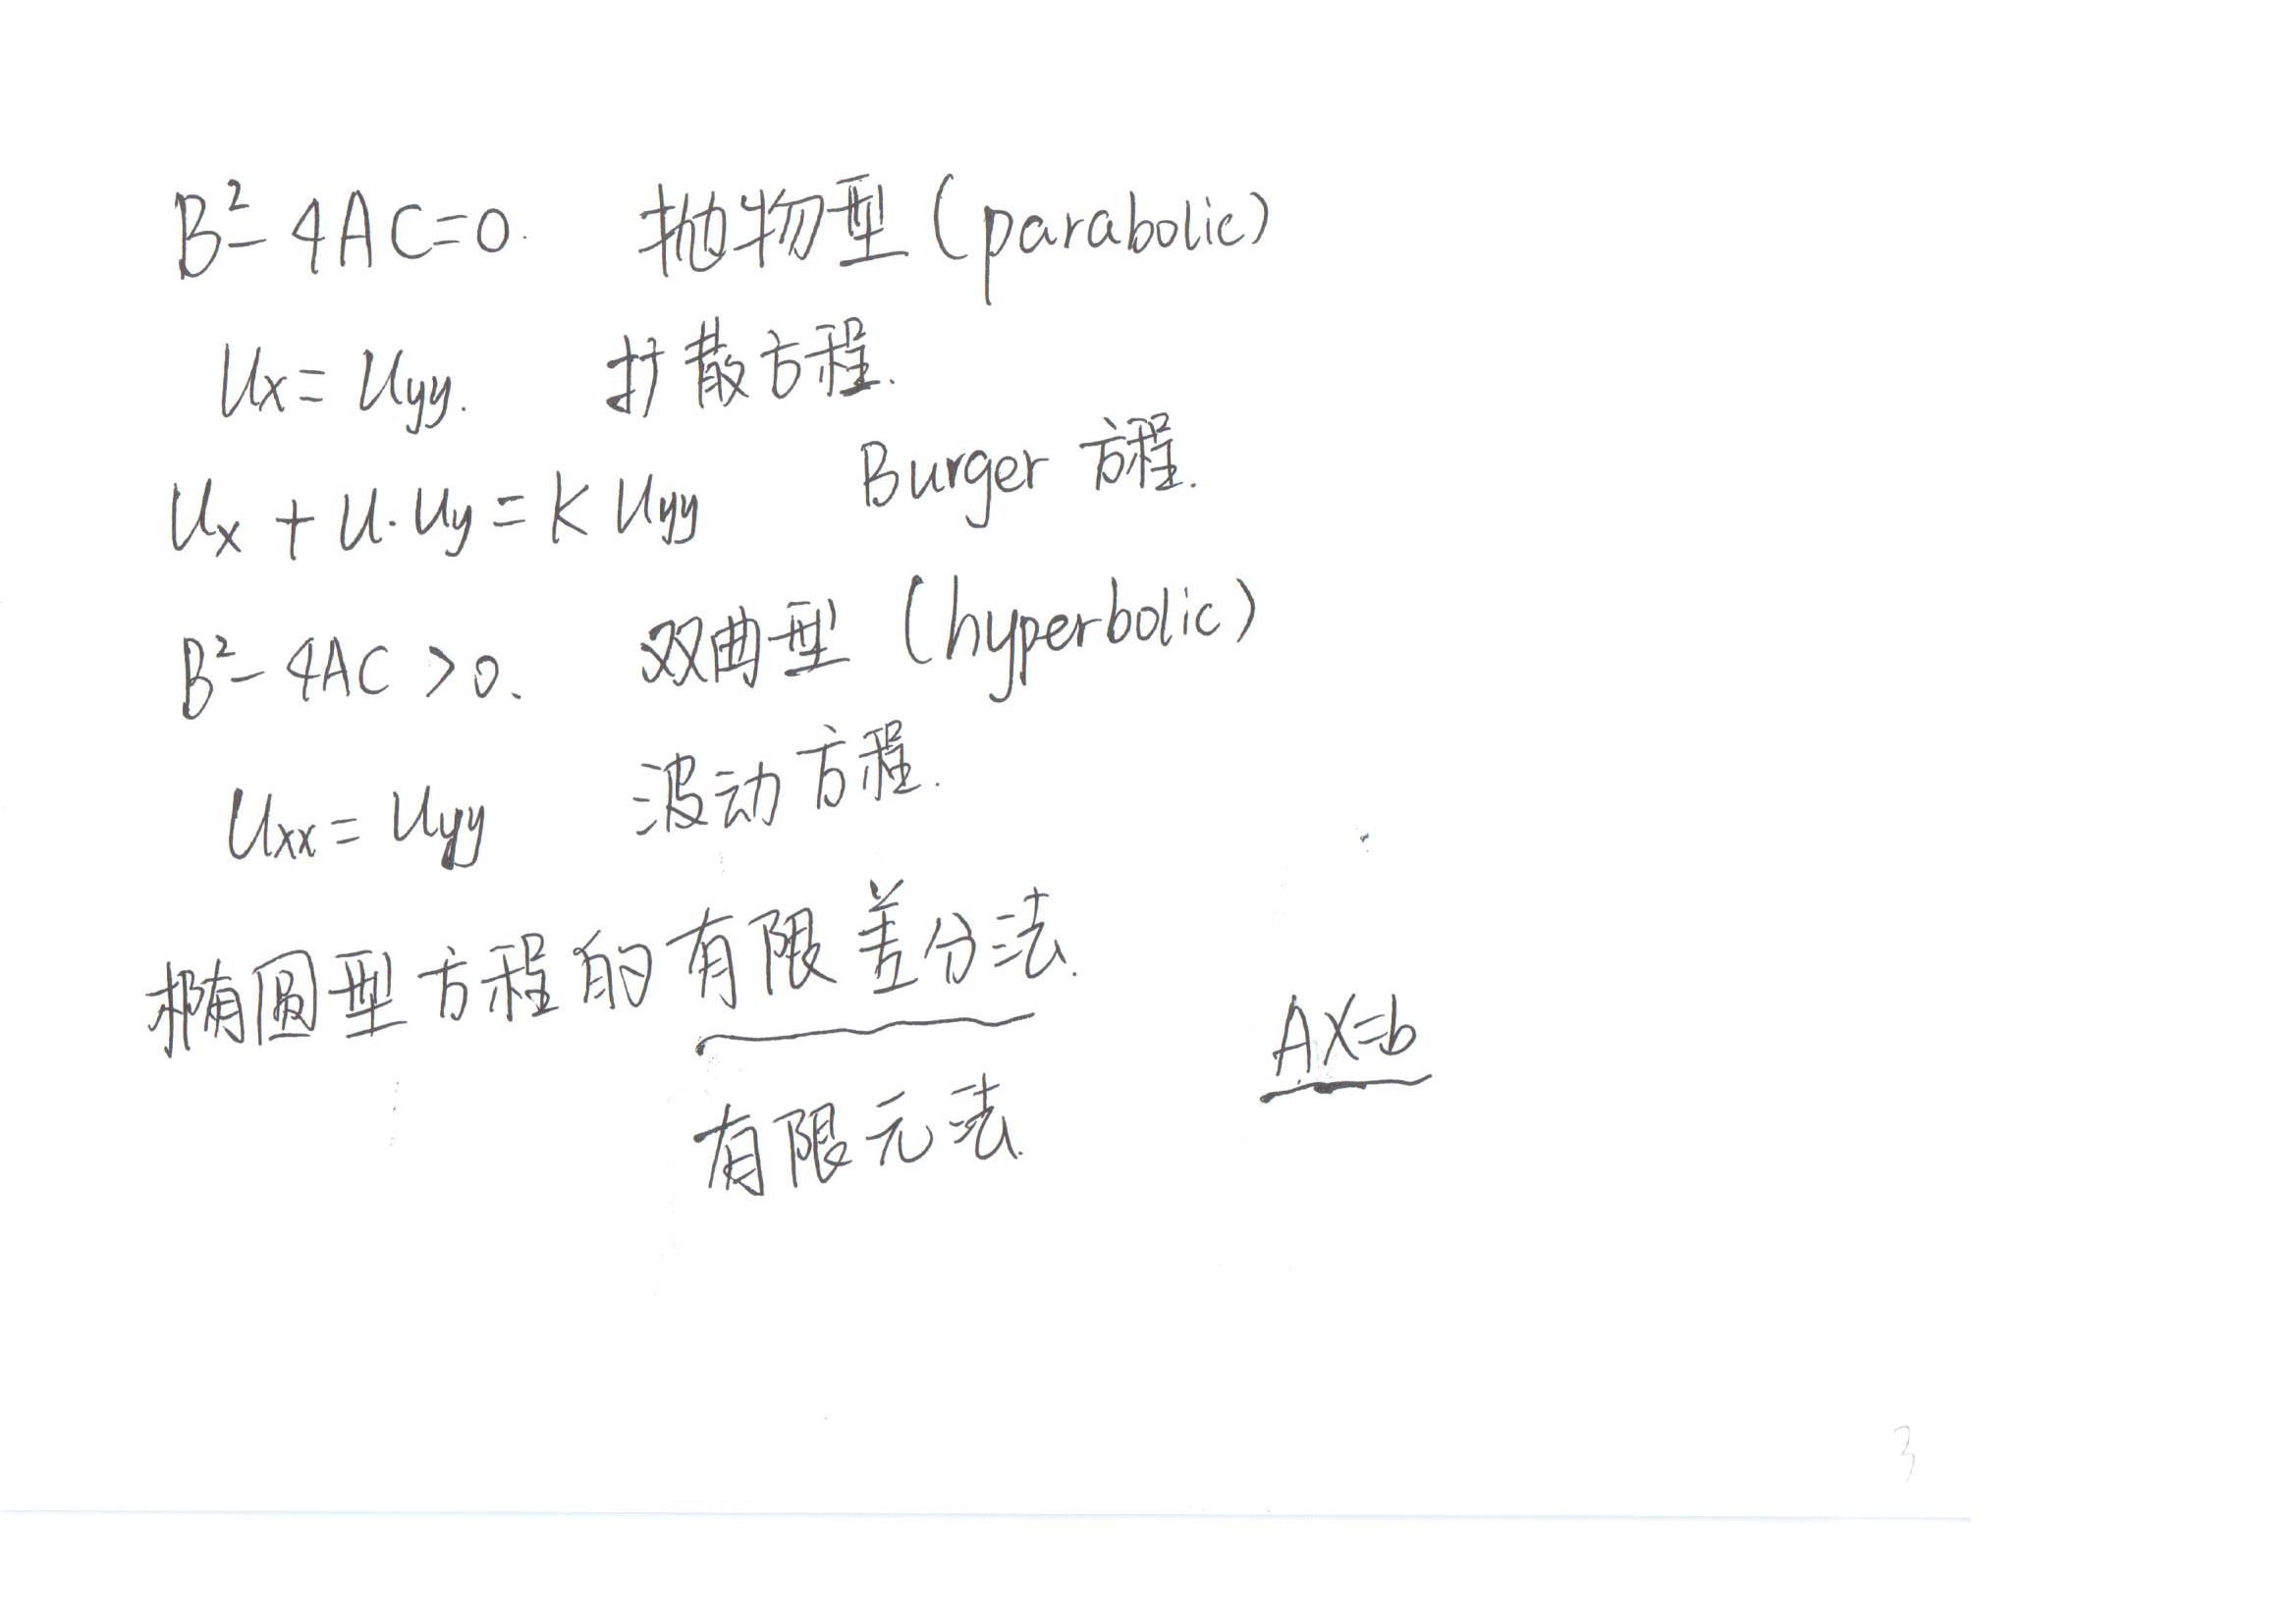 B²-4AC=0. 抛物型(parabolic)
Ux=Uyy. 扩散方程.
Ux+U·Uy=KUyy Burger 方程.
B²-4AC>0. 双曲型 (hyperbolic)
Uxx=Uyy 波动方程.
椭圆型方程的有限差分法.
AX=b
有限元法.
3